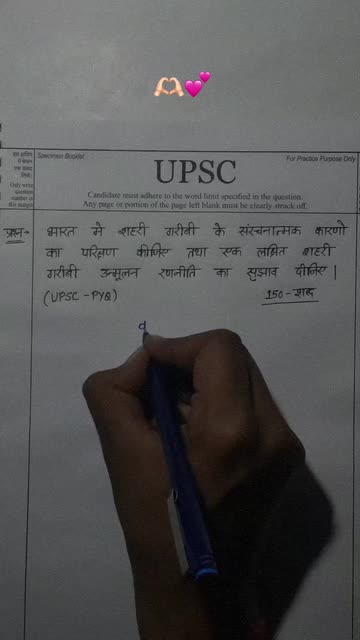 Specimen Booklet
For Practice Purpose Only
UPSC
Candidate must adhere to the word limit specified in the question.
Any page or portion of the page left blank must be clearly struck off.
Only write
question
number in
this margin
प्रश्न→ भारत में शहरी गरीबी के संरचनात्मक कारणो
का परिक्षण कीजिए तथा एक लक्षित शहरी
गरीबी उन्मूलन रणनीति का सुझाव दीजिए |
(UPSC - PYQ)
150 - शब्द